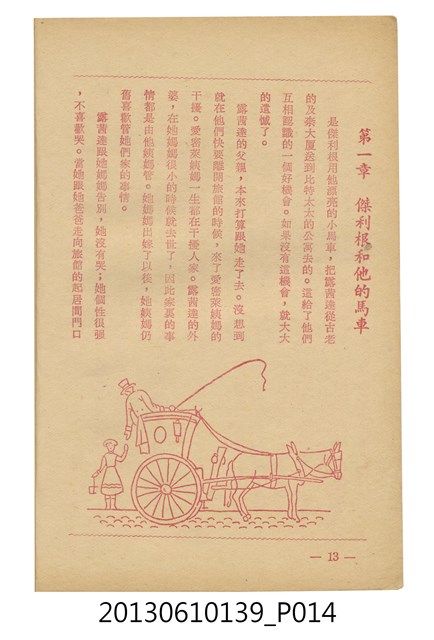 第一章　傑利根和他的馬車
是傑利根用他漂亮的小馬車，把露茜達從古老
的及奈大厦送到比特太太的公寓去的。這給了他們
互相認識的一個好機會。如果沒有這機會，就大大
的遺憾了。
露茜達的父親，本來打算跟她走了去。沒想到
就在他們快要離開旅館的時候，來了愛密萊姨媽的
干擾。愛密萊姨媽一生都在干擾人家。露茜達的外
婆，在她媽媽很小的時候就去世了，因此家裏的事
情都是由他姨媽管。她媽媽出嫁了以後，她姨媽仍
舊喜歡管她們家的事情。
露茜達跟她媽媽告別，她沒有哭；她個性很強
，不喜歡哭。當她跟她爸爸走向旅館的起居間門口
— 13 —
20130610139_P014